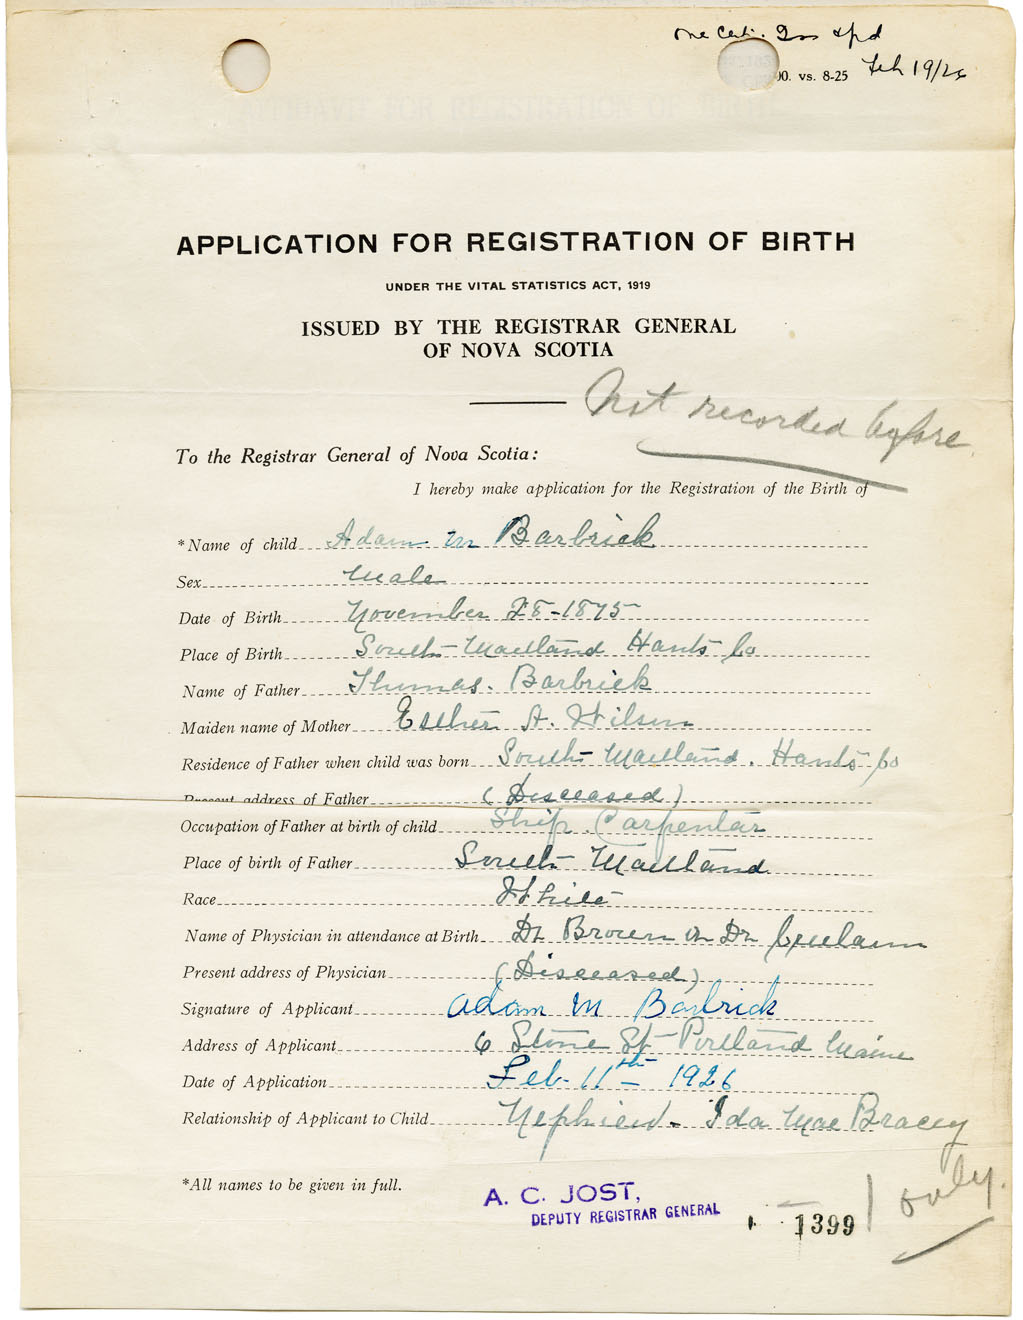 one Cert. Iss & pd
00. vs. 8-25 Feb 19/26
APPLICATION FOR REGISTRATION OF BIRTH
UNDER THE VITAL STATISTICS ACT, 1919
ISSUED BY THE REGISTRAR GENERAL
OF NOVA SCOTIA
Not recorded before
To the Registrar General of Nova Scotia:
I hereby make application for the Registration of the Birth of
*Name of child Adam M Barbrick
Sex Male
Date of Birth November 28-1875
Place of Birth South Maitland Hants Co
Name of Father Thomas. Barbrick
Maiden name of Mother Esther A. Wilson
Residence of Father when child was born South Maitland. Hants Co
Present address of Father (Disceased)
Occupation of Father at birth of child Ship Carpentar
Place of birth of Father South Maitland
Race White
Name of Physician in attendance at Birth Dr Brown or Dr
Present address of Physician (Disceased)
Signature of Applicant Adam M Barbrick
Address of Applicant 6 Stone St Portland Maine
Date of Application Feb. 11th 1926
Relationship of Applicant to Child Nephiew - Ida Mae Bracey
*All names to be given in full.
A. C. JOST,
DEPUTY REGISTRAR GENERAL
1399
1 only.